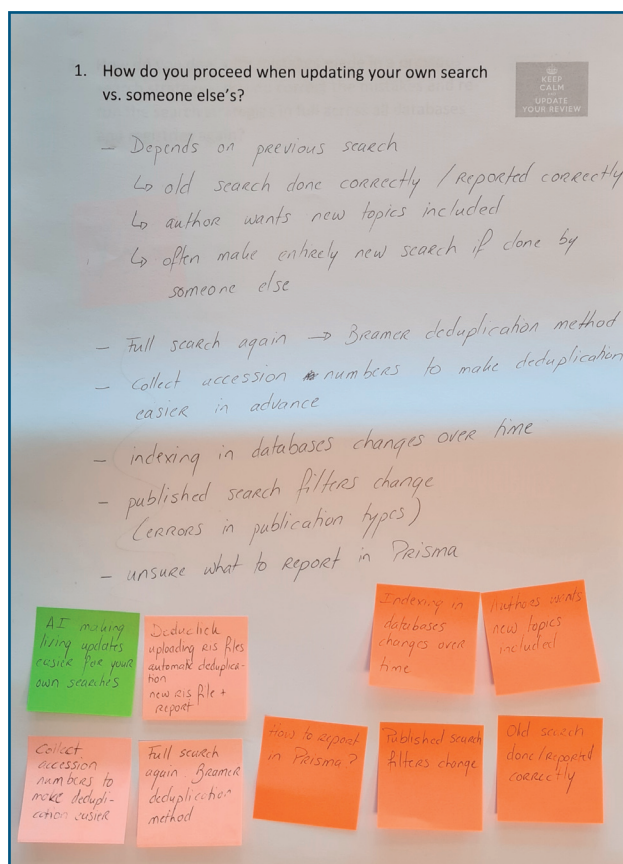 1. How do you proceed when updating your own search
vs. someone else's?
KEEP
CALM
AND
UPDATE
YOUR REVIEW
- Depends on previous search
↳ old search done correctly / Reported correctly
↳ author wants new topics included
↳ often make entirely new search if done by
someone else
- Full search again → Bramer deduplication method
- Collect accession numbers to make deduplication
easier in advance
- indexing in databases changes over time
- published search filters change
(errors in publication types)
- unsure what to report in Prisma
AI making
living updates
easier for your
own searches
Deduklick
uploading RIS files
automate deduplica-
tion
new RIS file +
Report
Indexing in
databases
changes over
time
Authors wants
new topics
included
Collect
accession
numbers to
make dedupli-
cation easier
Full search
again. Bramer
deduplication
method
How to report
in Prisma?
Published search
filters change
Old search
done/reported
correctly